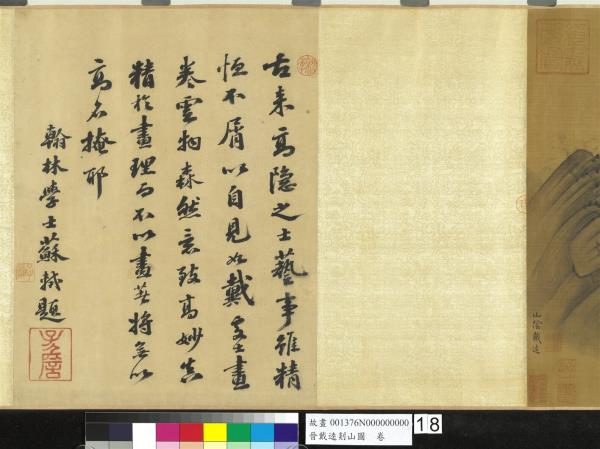 古來高隱之士藝事雖精
恆不屑以自見如戴
卷雲物森然意致高妙真
精於畫理而不以畫著將無以
高名掩耶
翰林學士蘇軾題
山陰戴逵
故畫 001376N000000000
晉戴逵剡山圖 卷
18